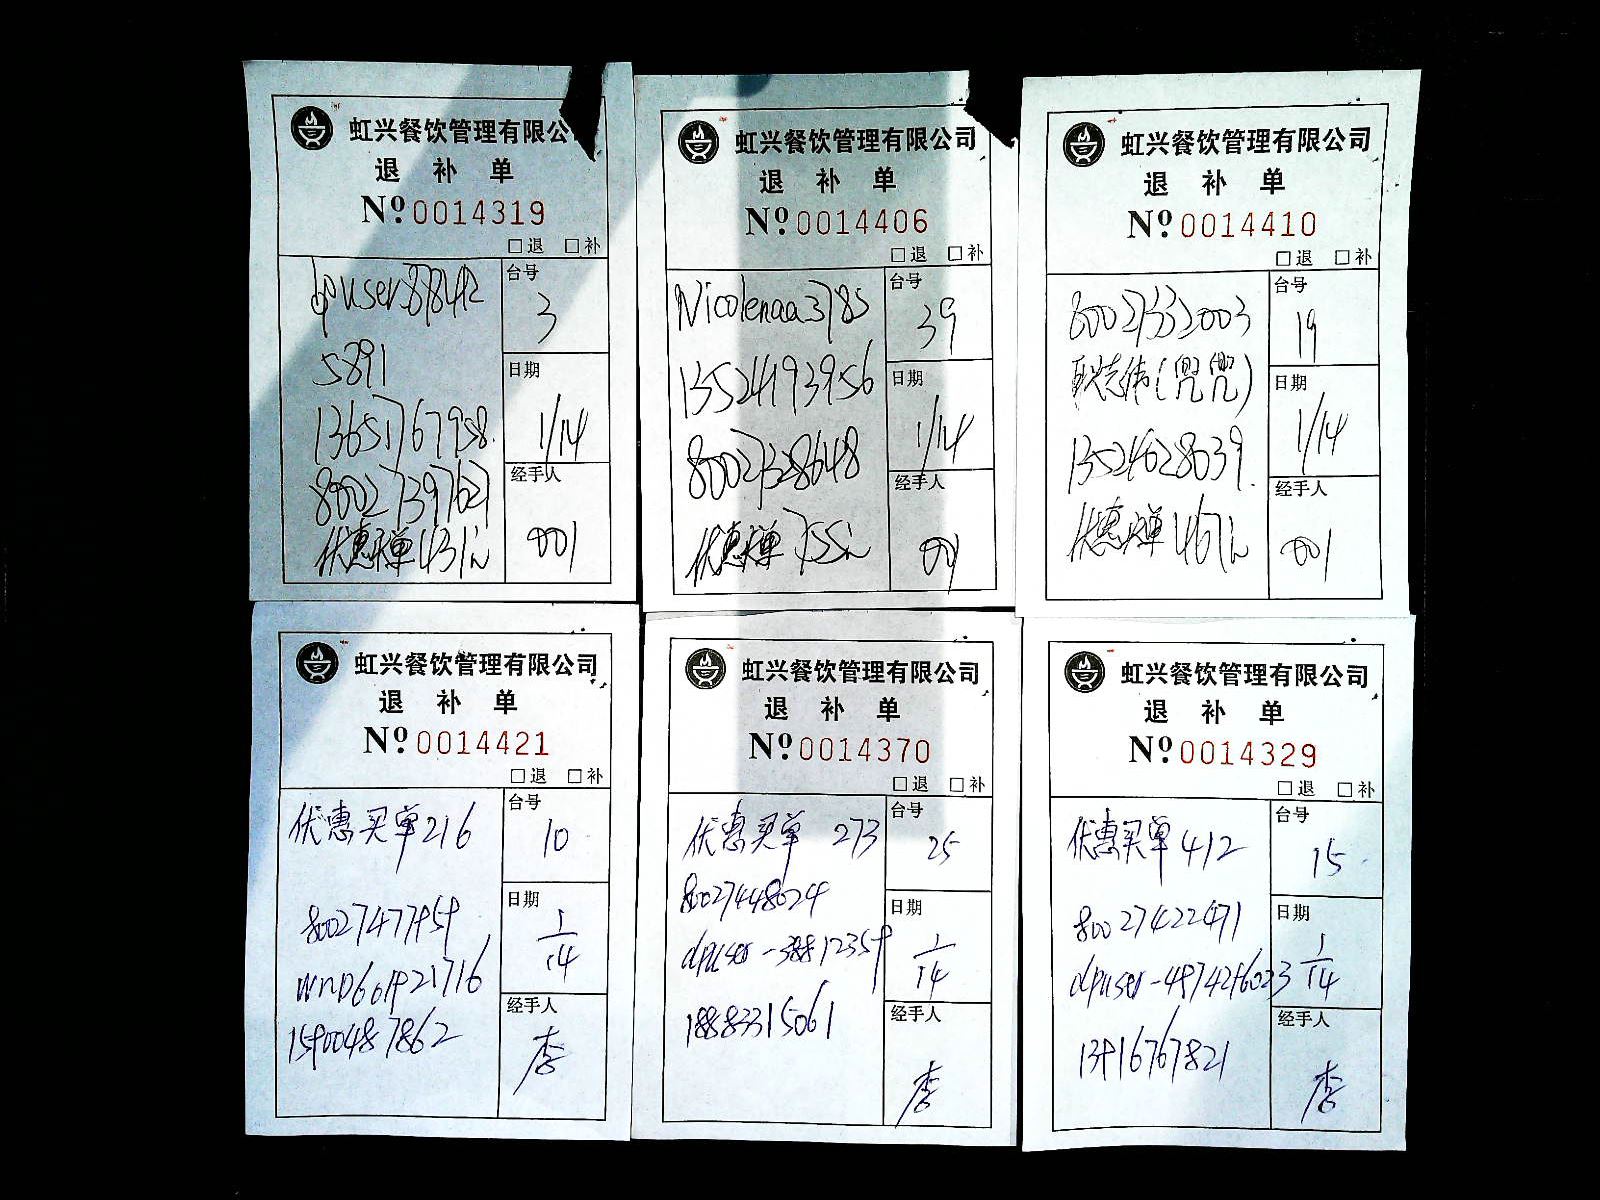 虹兴餐饮管理有限公
退 补 单
Nº 0014319
□退 □补
台号
3
5891
日期
1/14
13651767958.
80027397621
经手人
001
优惠买单431元
虹兴餐饮管理有限公司
退 补 单
Nº 0014406
□退 □补
台号
Nicolenaa3785
39
13524193956
日期
1/14
80027328648
经手人
001
优惠买单755元
虹兴餐饮管理有限公司
退 补 单
Nº 0014410
□退 □补
台号
80027332003
19
(兜兜)
日期
1/14
13524628039.
经手人
001
优惠买单467元
虹兴餐饮管理有限公司
退 补 单
Nº 0014421
□退 □补
台号
优惠买单216
10
日期
80027477959
1/14
经手人
15900487862
李
虹兴餐饮管理有限公司
退 补 单
Nº 0014370
□退 □补
台号
优惠买单 273
25
80027448024
日期
dpuser-38812359
1/14
18883315061
经手人
李
虹兴餐饮管理有限公司
退 补 单
Nº 0014329
□退 □补
台号
优惠买单412
15
日期
80027422471
dpuser-4974296023
1/14
经手人
13916767821
李